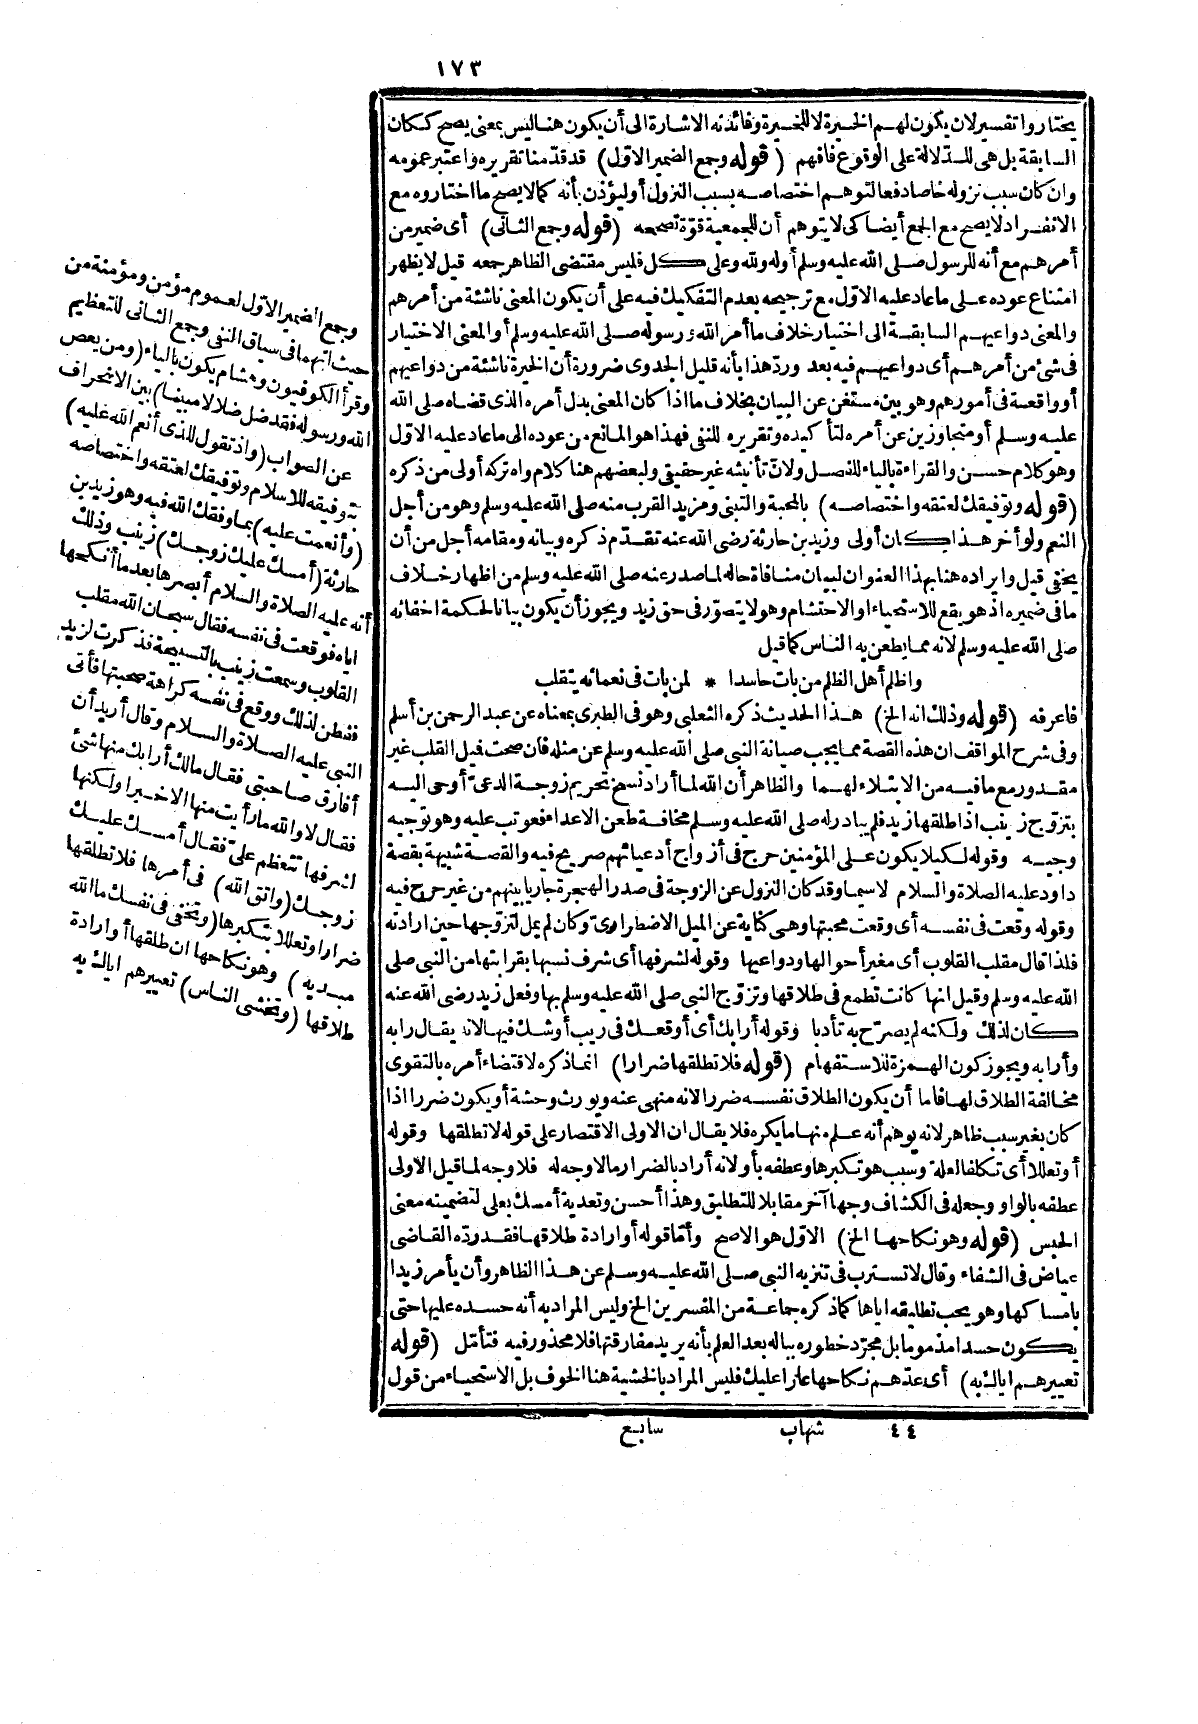 ١٧٣
يختاروا تفسير لان يكون لهم الخيرة لا للخيرة وفائدته الاشارة الى أن يكون هنا ليس بمعنى يصح ككان
السابقة بل هي للدلالة على الوقوع فافهم (قوله وجمع الضمير الاوّل) قد قدّمنا تقريره واعتبر عمومه
وان كان سبب نزوله خاصا دفعا لتوهم اختصاصه بسبب النزول أو ليؤذن بأنه كما لا يصح ما اختاروه مع
الانفراد لا يصح مع الجمع أيضا كى لا يتوهم أن للجمعية قوّة تصححه (قوله وجمع الثانى) أى ضمير من
أمرهم مع أنه للرسول صلى الله عليه وسلم أو له ولله وعلى كل فليس مقتضى الظاهر جمعه قيل لا يظهر
امتناع عوده على ما عاد عليه الاوّل مع ترجيحه بعدم التفكيك فيه على أن يكون المعنى ناشئة من أمرهم
والمعنى دواعيهم السابقة الى اختيار خلاف ما أمر الله ورسوله صلى الله عليه وسلم أو المعنى الاختيار
فى شئ من أمرهم أى دواعيهم فيه بعد وردّ هذا بأنه قليل الجدوى ضرورة أن الخيرة ناشئة من دواعيهم
أو واقعة فى أمورهم وهو بين مستغن عن البيان بخلاف ما اذا كان المعنى بدل أمره الذى قضاه صلى الله
عليه وسلم أو متجاوزين عن أمره لتأكيده وتقريره للنفى فهذا هو المانع من عوده الى ما عاد عليه الاوّل
وهو كلام حسن والقراءة بالياء للفصل ولانّ تأنيثه غير حقيقى ولبعضهم هنا كلام واه تركه أولى من ذكره
(قوله وتوفيقك لعتقه واختصاصه) بالمحبة والتبنى ومزيد القرب منه صلى الله عليه وسلم وهو من أجل
النعم ولو أخر هذا كان أولى وزيد بن حارثة رضى الله عنه تقدّم ذكره وبيانه ومقامه أجل من أن
يخفى قيل وايراده هنا بهذا العنوان لبيان منافاة حاله لما صدر عنه صلى الله عليه وسلم من اظهار خلاف
ما فى ضميره اذ هو يقع للاستحياء او الاحتشام وهو لا يتصوّر فى حق زيد ويجوز أن يكون بيانا لحكمة اخفائه
صلى الله عليه وسلم لانه مما يطعن به الناس كما قيل
واظلم أهل الظلم من بات حاسدا * لمن بات فى نعمائه يتقلب
فاعرفه (قوله وذلك انه الخ) هذا الحديث ذكره الثعلبى وهو فى الطبرى بمعناه عن عبد الرحمن بن أسلم
وفى شرح المواقف ان هذه القصة مما يجب صيانة النبى صلى الله عليه وسلم عن مثله فان صحت فميل القلب غير
مقدور مع ما فيه من الابتلاء لهما والظاهر أن الله لما أراد نسخ تحريم زوجة الدعىّ أوحى اليه
بتزوّج زينب اذا طلقها زيد فلم يبادر له صلى الله عليه وسلم مخافة طعن الاعداء فعوتب عليه وهو توجيه
وجيه وقوله لكيلا يكون على المؤمنين حرج فى أزواج أدعيائهم صريح فيه والقصة شبيهة بقصة
داود عليه الصلاة والسلام لا سيما وقد كان النزول عن الزوجة فى صدر الهجرة جاريا بينهم من غير حرج فيه
وقوله وقعت فى نفسه أى وقعت محبتها وهى كناية عن الميل الاضطرارىّ وكان لم يمل لتزوّجها حين ارادته
فلذا قال مقلب القلوب أى مغير أحوالها ودواعيها وقوله لشرفها أى شرف نسبها بقرابتها من النبى صلى
الله عليه وسلم وقيل انها كانت تطمع فى طلاقها وتزوّج النبى صلى الله عليه وسلم بها وفعل زيد رضى الله عنه
كان لذلك ولكنه لم يصرّح به تأدبا وقوله أرابك أى أوقعك فى ريب أو شك فيها لانه يقال رابه
وأرابه ويجوز كون الهمزة للاستفهام (قوله فلا تطلقها ضرارا) انما ذكره لاقتضاء أمره بالتقوى
مخالفة الطلاق لها فاما أن يكون الطلاق نفسه ضررا لانه منهى عنه ويورث وحشة أو يكون ضررا اذا
كان بغير سبب ظاهر لانه يوهم أنه علم منها ما يكره فلا يقال ان الاولى الاقتصار على قوله لا تطلقها وقوله
أو تعللا أى تكلفا لعلة وسبب هو تكبرها وعطفه بأو لانه أراد بالضرار ما لا وجه له فلا وجه لما قيل الاولى
عطفه بالواو وجعله فى الكشاف وجها آخر مقابلا للتطليق وهذا أحسن وتعدية أمسك بعلى لتضمينه معنى
الحبس (قوله وهو نكاحها الخ) الاوّل هو الاصح وأمّا قوله أو ارادة طلاقها فقد ردّه القاضى
عياض فى الشفاء وقال لا تسترب فى تنزيه النبى صلى الله عليه وسلم عن هذا الظاهر وأن يأمر زيدا
بامساكها وهو يحب تطليقه اياها كما ذكره جماعة من المفسرين الخ وليس المراد به أنه حسده عليها حتى
يكون حسدا مذموما بل مجرّد خطوره بباله بعد العلم بأنه يريد مفارقتها فلا محذور فيه فتأمّل (قوله
تعييرهم اياك به) أى عدّهم نكاحها عارا عليك فليس المراد بالخشية هنا الخوف بل الاستحياء من قول
٤٤ شهاب سابع
وجمع الضمير الاوّل لعموم مؤمن ومؤمنة من
حيث انهما فى سياق النفى وجمع الثانى للتعظيم
وقرأ الكوفيون وهشام يكون بالياء (ومن يعص
الله ورسوله فقد ضل ضلالا مبينا) بين الانحراف
عن الصواب (واذ تقول للذى أنعم الله عليه)
بتوفيقه للاسلام وتوفيقك لعتقه واختصاصه
(وأنعمت عليه) بما وفقك الله فيه وهو زيد بن
حارثة (أمسك عليك زوجك) زينب وذلك
أنه عليه الصلاة والسلام أبصرها بعد ما أنكحها
اياه فوقعت فى نفسه فقال سبحان الله مقلب
القلوب وسمعت زينب بالتسبيحة فذكرت لزيد
ففطن لذلك ووقع فى نفسه كراهة صحبتها فأتى
النبى عليه الصلاة والسلام وقال أريد أن
أفارق صاحبتى فقال مالك أرابك منها شئ
فقال لا والله ما رأيت منها الا خيرا ولكنها
لشرفها تتعظم علىّ فقال أمسك عليك
زوجك (واتق الله) فى أمرها فلا تطلقها
ضرارا وتعللا بتكبرها (وتخفى فى نفسك ما الله
مبديه) وهو نكاحها ان طلقها أو ارادة
طلاقها (وتخشى الناس) تعييرهم اياك به